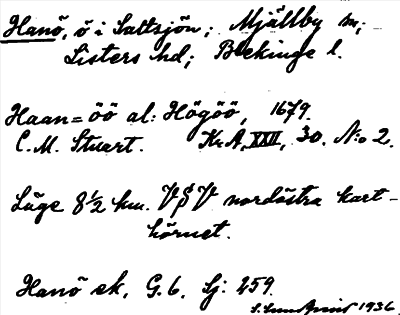 Hanö, ö i Saltsjön; Mjällby sn;
Listers hd; Blekinge l.
Haan=öö al: Högöö, 1679.
C. M. Stuart. Kr.A, XXII, 30. N:o 2.
Läge 8½ km. V S V nordöstra kart-
hörnet.
Hanö ek. G. b. Sj: 259.
1936.